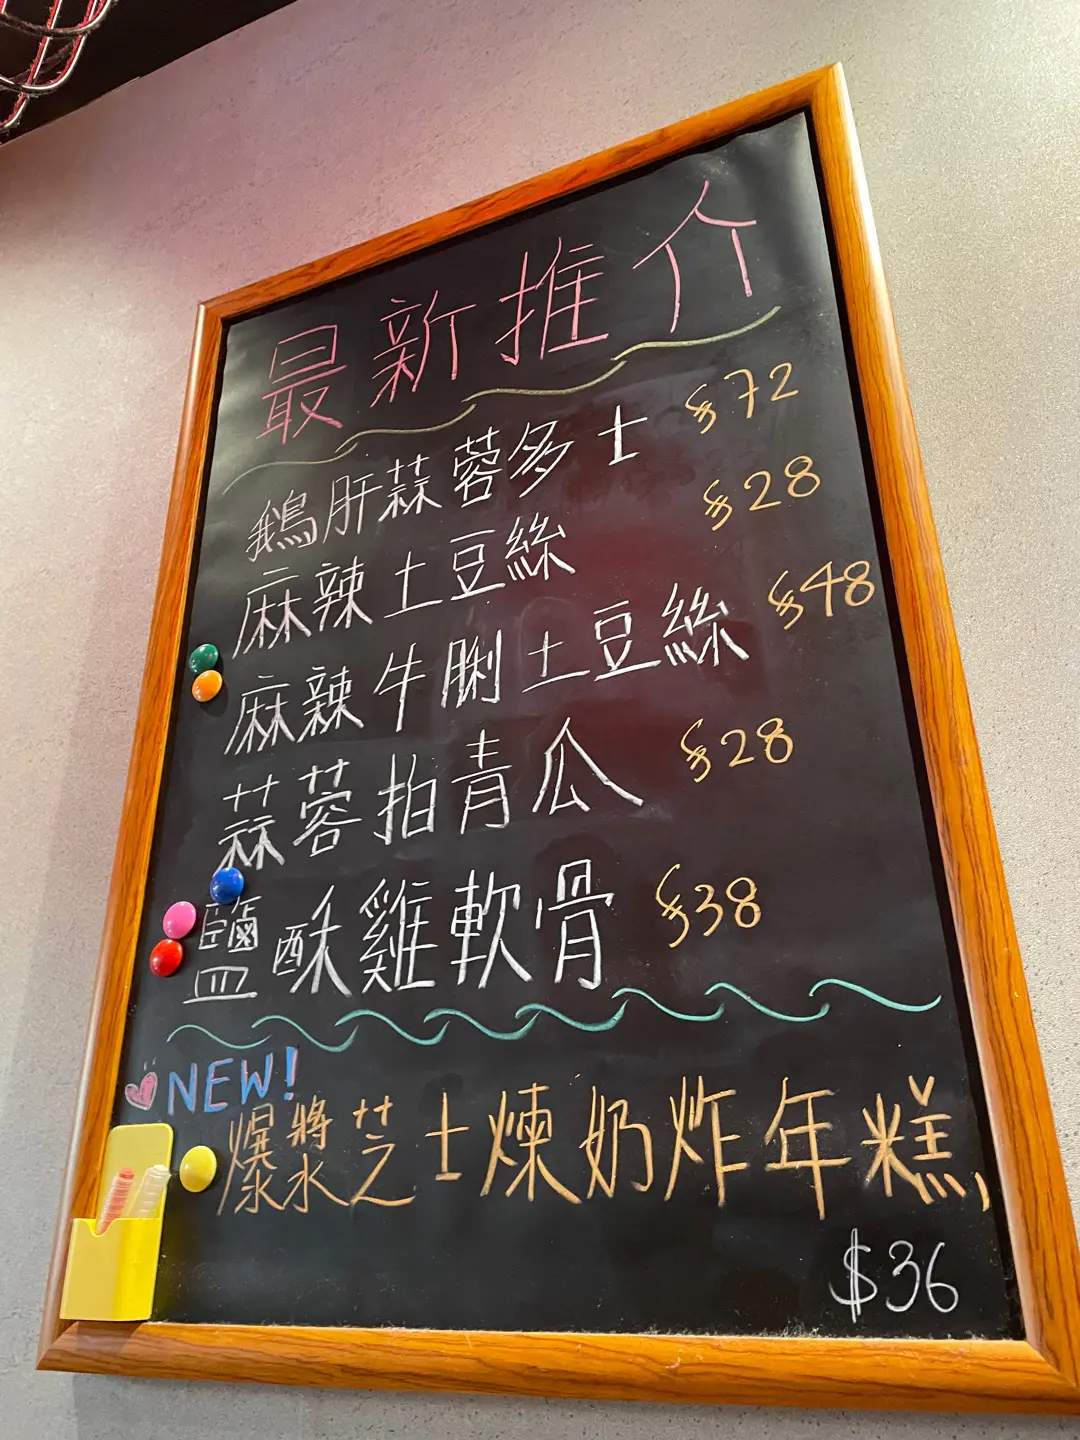 最新推介
鵝肝蒜蓉多士 $72
麻辣土豆絲 $28
麻辣牛脷土豆絲 $48
蒜蓉拍青瓜 $28
鹽酥雞軟骨 $38
NEW!
爆漿芝士煉奶炸年糕
$36